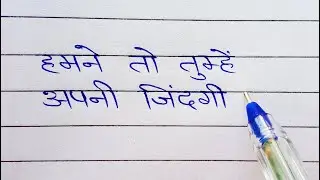 हमने तो तुम्हें
अपनी जिंदगी